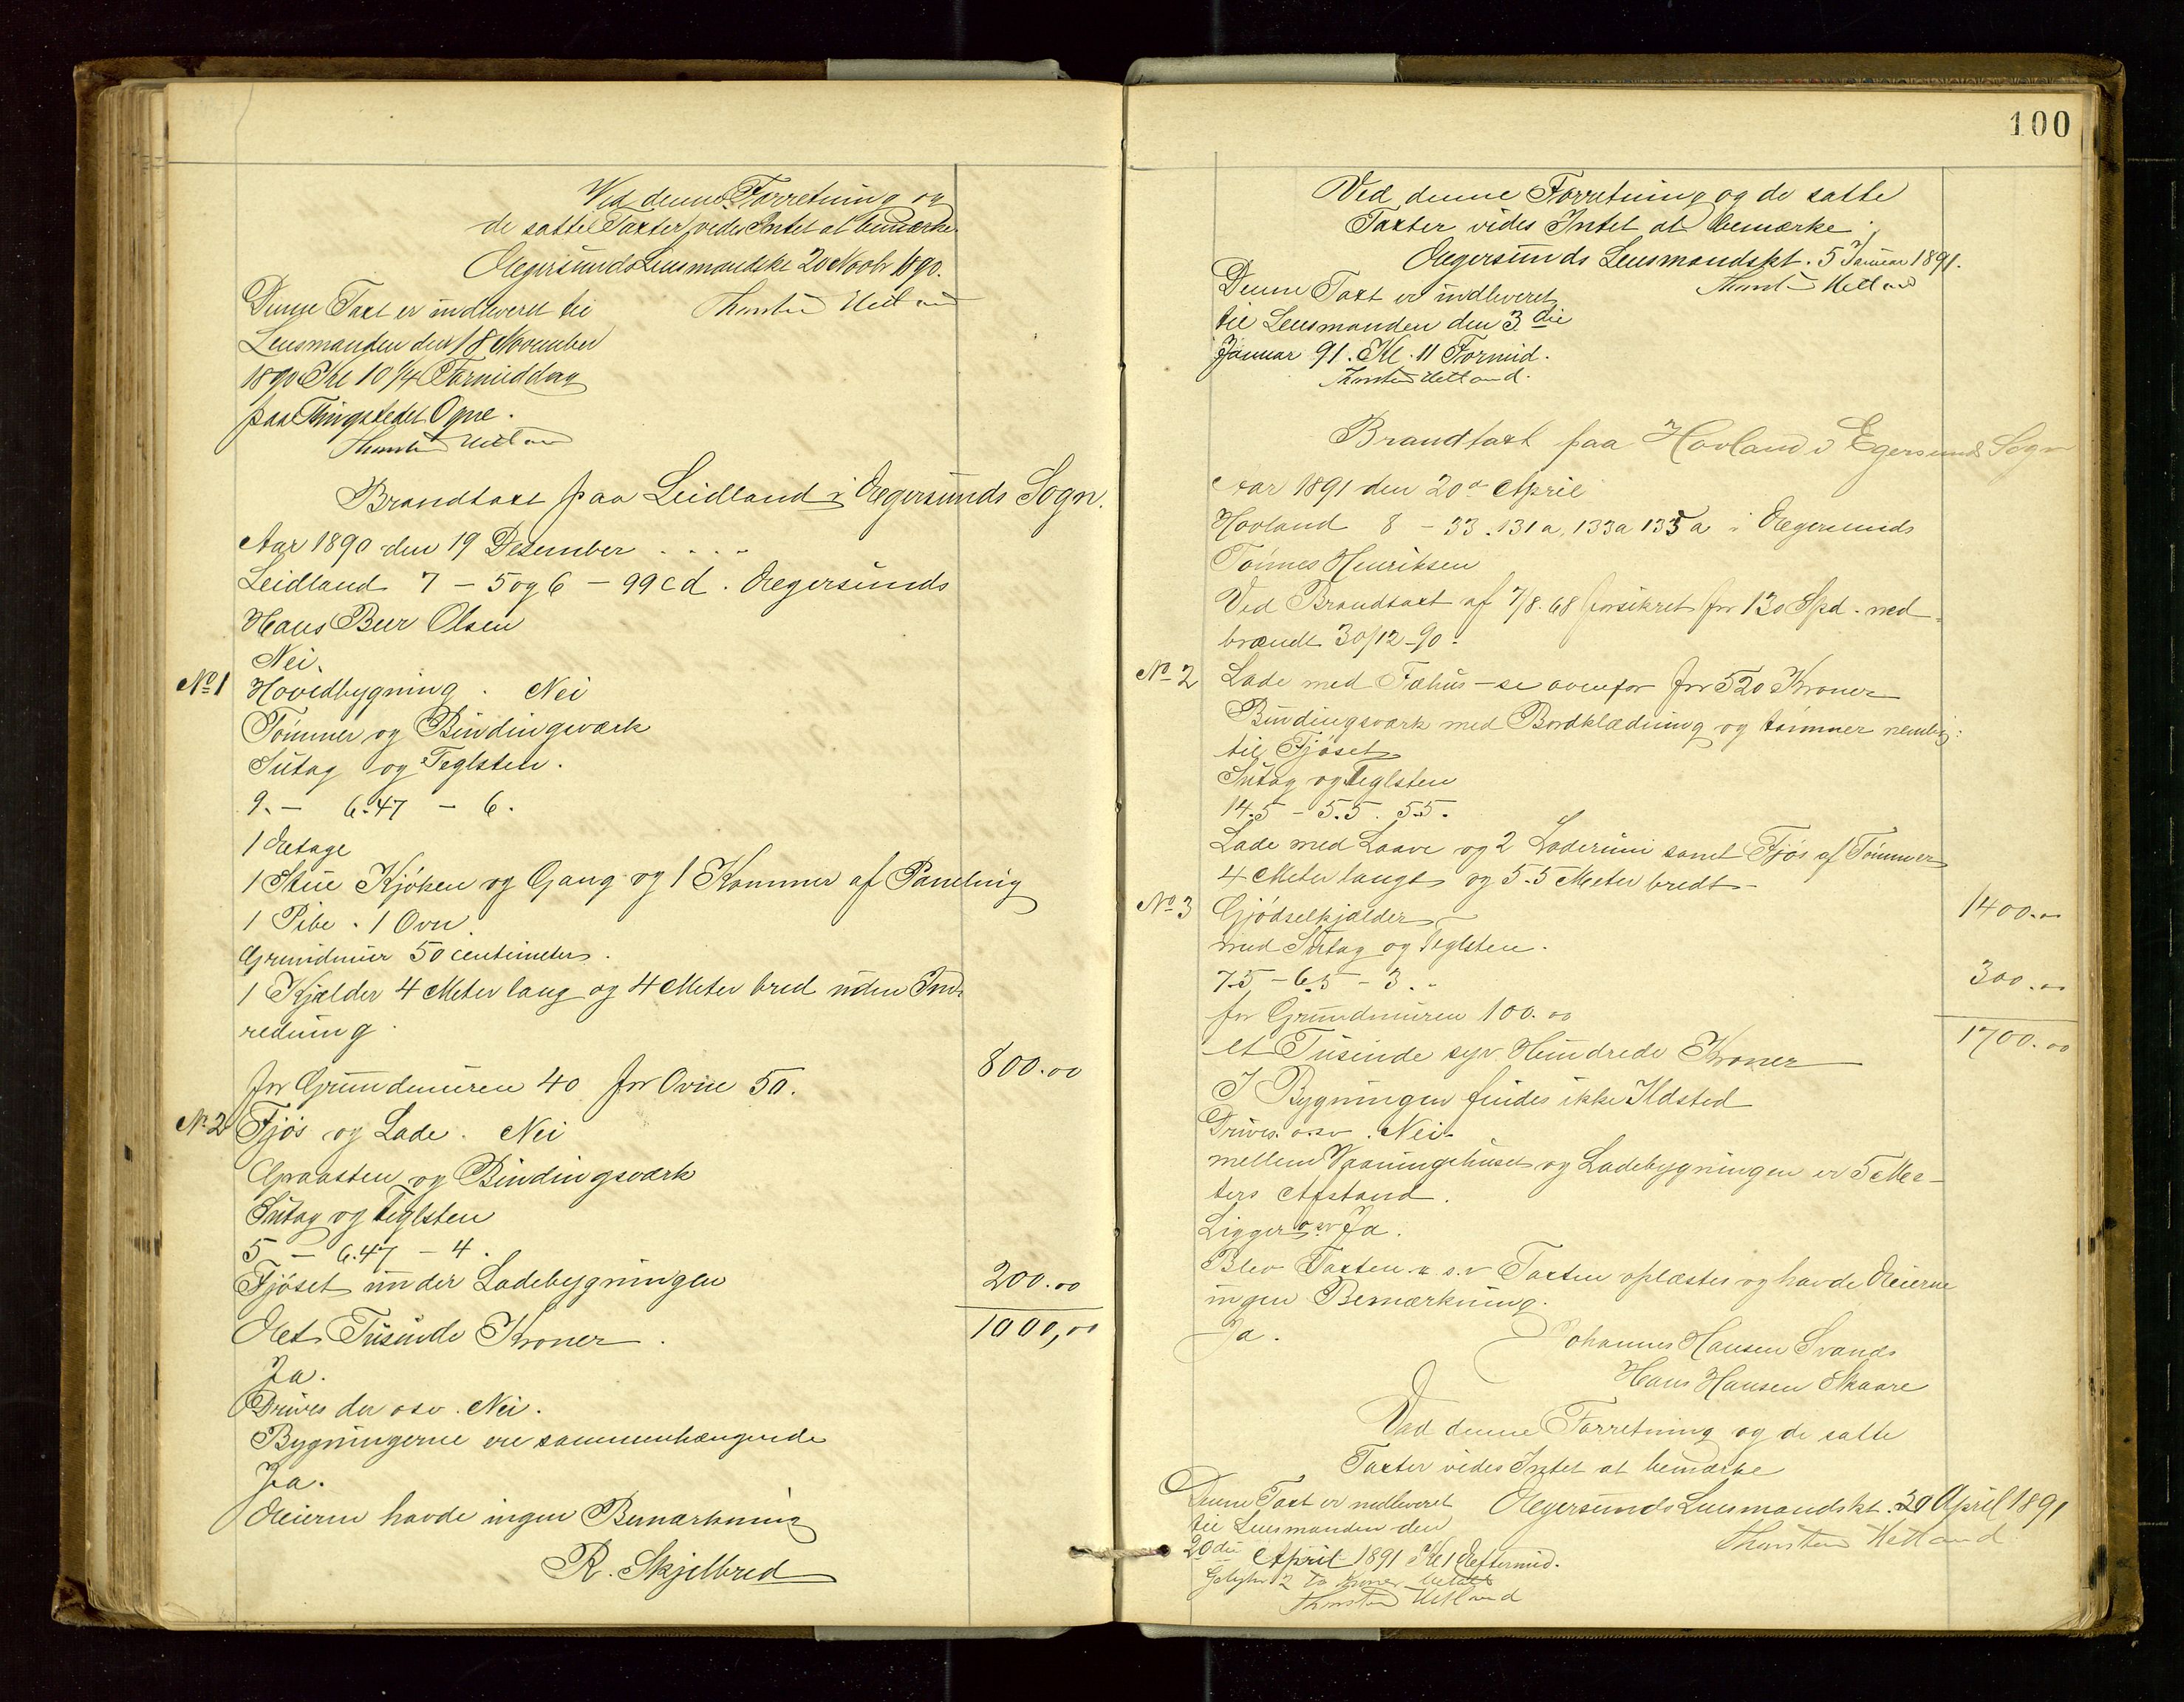 Ved denne Forretning og
de satte Taxter vides Intet at bemærke.
Ægersunds Lensmandskt 20 Novbr 1890.
Thorsten Hetland
Denne Taxt er indleveret til
Lensmanden den 18 November
1890 Kl 10 1/4 Formiddag
paa Thingstedet Ogne.
Thorsten Hetland
Brandtaxt paa Leidland i Ægersunds Sogn.
Aar 1890 den 19 Desember . . . .
Leidland 7 – 5 og 6 – 99 c d . Ægersunds
Hans Beer Olsen
Nei.
No 1 Hovedbygning . Nei
Tømmer og Bindingsværk
Sutag og Teglsten.
9. – 6.47 – 6.
1 Etage
1 Stue Kjøken og Gang og 1 Kammer af Paneling
1 Pibe . 1 Ovn.
Grundmur 50 centimeter.
1 Kjælder 4 Meter lang og 4 Meter bred uden Ind-
redning.
for Grundmuren 40 for Ovne 50. 800.00
No 2 Fjøs og Lade. Nei
Graasten og Bindingsværk
Sutag og Teglsten
5 – 6.47 – 4.
Fjøset under Ladebygningen 200.00
Et Tusinde Kroner. 1000,00
Ja.
Drives der osv. Nei.
Bygningerne ere sammenhængende
Ja.
Eieren havde ingen Bemærkning
R. Skjelbred
100
Ved denne Forretning og de satte
Taxter vides Intet at bemærke
Ægersunds Lensmandskt. 5 Januar 1891.
Thorsten Hetland
Denne Taxt er indleveret
til Lensmanden den 3die
Januar 91. Kl. 11 Formid.
Thorsten Hetland.
Brandtaxt paa Hovland i Egersunds Sogn
Aar 1891 den 20de April
Hovland 8 – 33 . 131a, 133a 135a i Ægersunds
Tønnes Henriksen
Ved Brandtaxt af 7/8. 68 forsikret for 130 Spd. ned-
brændt 30/12-90.
No 2 Lade med Fæhus – se ovenfor for 520 Kroner
Bindingsværk med Bordklædning og tømmer nemlig:
til Fjøset
Sutag og Teglsten
14.5 – 5.5. 5.5.
Lade med Laave og 2 Laderum samt Fjøs af Tømmer
4 Meter langt og 5.5 Meter bredt – 1400.00
No 3 Gjødselkjælder –
med Sutag og Teglsten.
7.5 – 6.5 – 3. 300.00
for Grundmuren 100.00
et Tusinde syv Hundrede Kroner 1700.00
I Bygningen findes ikke Ildsted
Drives. osv. Nei.
mellem Vaaningehuset og Ladebygningen er 5 Me-
ters Afstand.
Ligger osv Ja.
Blev Taxten o s.v Taxten oplæstes og havde Eierne
ingen Bemærkning.
Ja.
Johannes Hansen Svands
Hans Hansen Skaare
Ved denne Forretning og de satte
Taxter vides Intet at bemærke
Ægersunds Lensmandskt. 20 April 1891
Thorsten Hetland
Denne Taxt er indleveret
til Lensmanden den
20die April 1891 Kl 1 Eftermid.
Gebyhr 2 to Kroner betalt
Thorsten Hetland